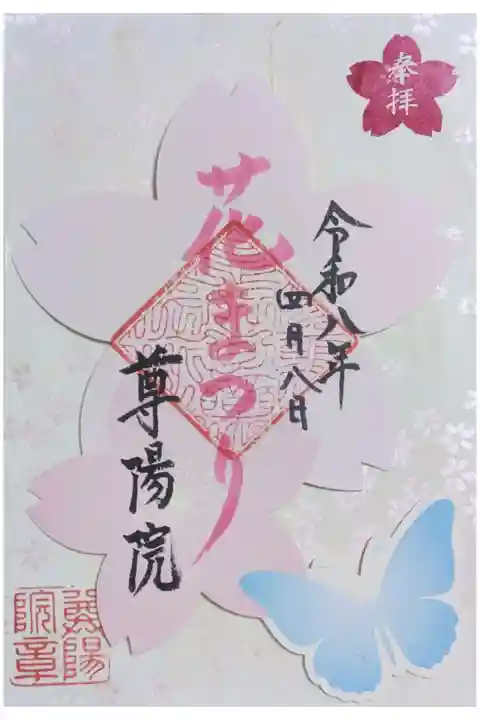 奉拝
令和八年
四月八日
花まつり
尊陽院